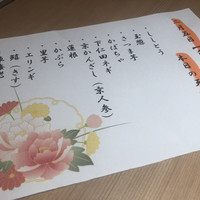 本日の天
・ししとう
・玉葱
・さつま芋
・かぼちゃ
・下仁田ネギ
・京かんざし(京人参)
・蓮根
・かぶら
・里芋
・エリンギ
・鱚(きす)